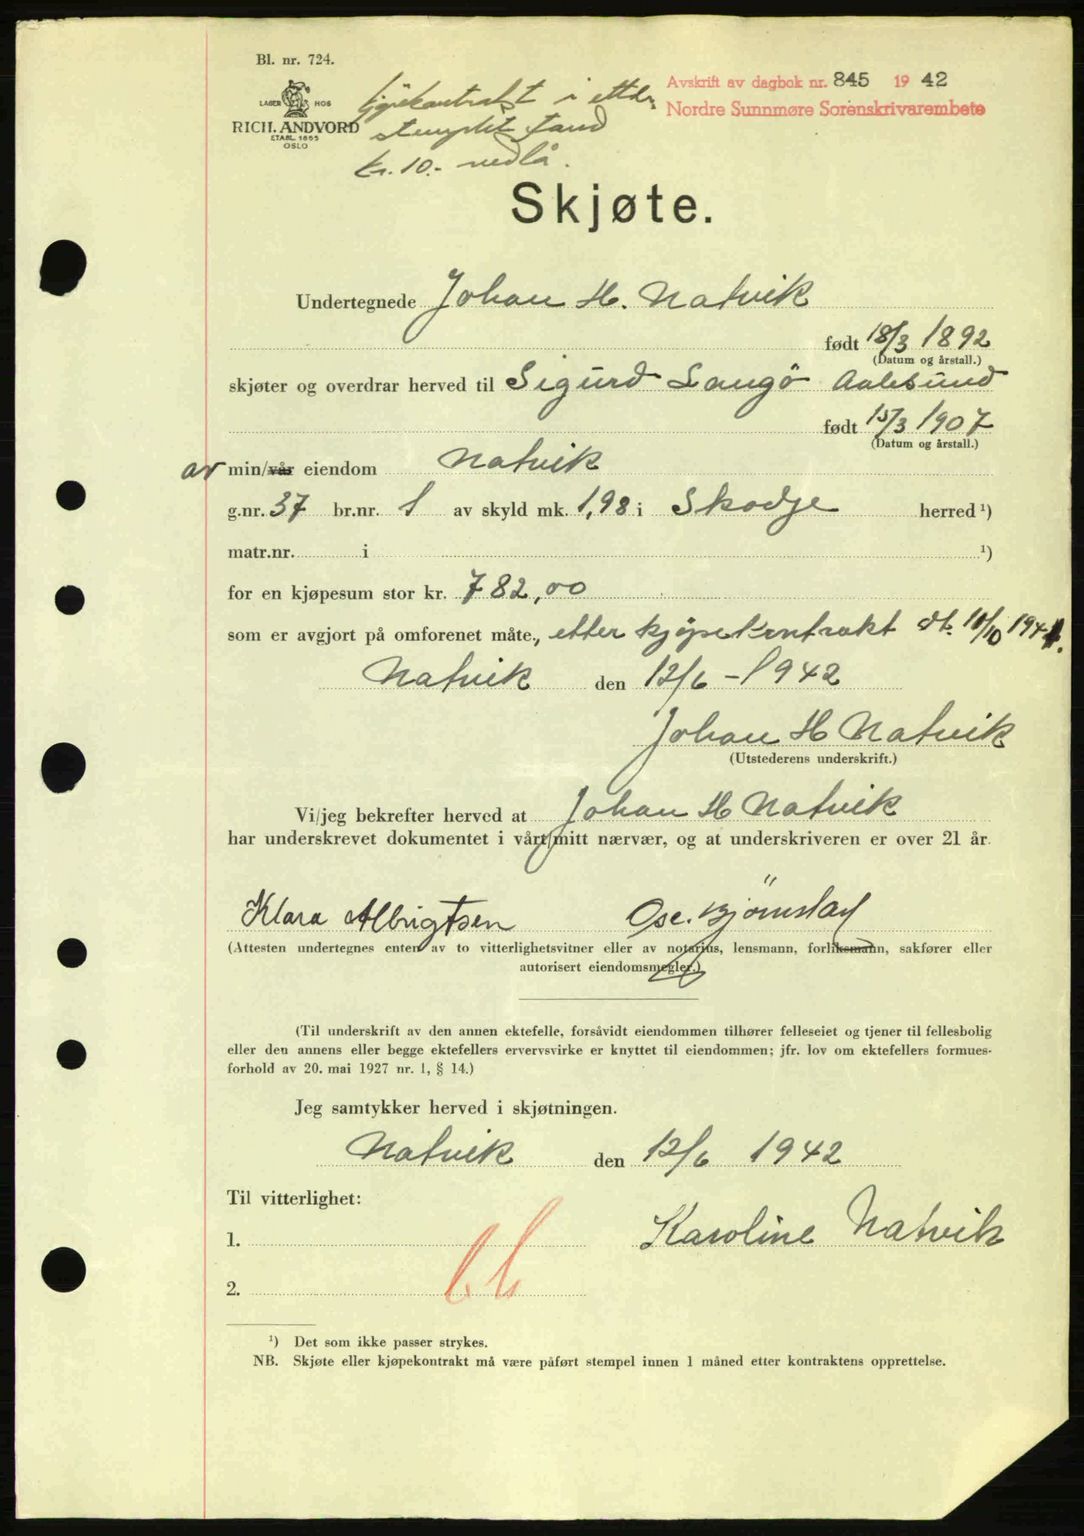 Bl. nr. 724.
LAGER HOS
RICH. ANDVORD
ETABL. 1865
OSLO
kjøpekontrakt i
stemplet
kr. 10.- vedlå.
Avskrift av dagbok nr. 845 1942
Nordre Sunnmøre Sorenskrivarembete
Skjøte.
Undertegnede Johan H. Natvik
født 18/3 1892
(Datum og årstall.)
skjøter og overdrar herved til Sigurd Langö Aalesund
født 15/3 1907
(Datum og årstall.)
av min/vår eiendom Natvik
g.nr. 37 br.nr. 1 av skyld mk. 1,98 i Skodje herred ¹)
matr.nr. i ¹)
for en kjøpesum stor kr. 782,00
som er avgjort på omforenet måte., etter kjöpekontrakt dt. 10/10 1941.
Natvik den 12/6 - 1942
Johan H Natvik
(Utstederens underskrift.)
Vi/jeg bekrefter herved at Johan H Natvik
har underskrevet dokumentet i vårt/mitt nærvær, og at underskriveren er over 21 år.
Klara Albrigtsen Osc. Bjömstad
(Attesten undertegnes enten av to vitterlighetsvitner eller av notarius, lensmann, forliksmann, sakfører eller
autorisert eiendomsmegler.)
(Til underskrift av den annen ektefelle, forsåvidt eiendommen tilhører felleseiet og tjener til fellesbolig
eller den annens eller begge ektefellers ervervsvirke er knyttet til eiendommen; jfr. lov om ektefellers formues-
forhold av 20. mai 1927 nr. 1, § 14.)
Jeg samtykker herved i skjøtningen.
Natvik den 12/6 1942
Til vitterlighet:
Karoline Natvik
1.
2.
¹) Det som ikke passer strykes.
NB. Skjøte eller kjøpekontrakt må være påført stempel innen 1 måned etter kontraktens opprettelse.